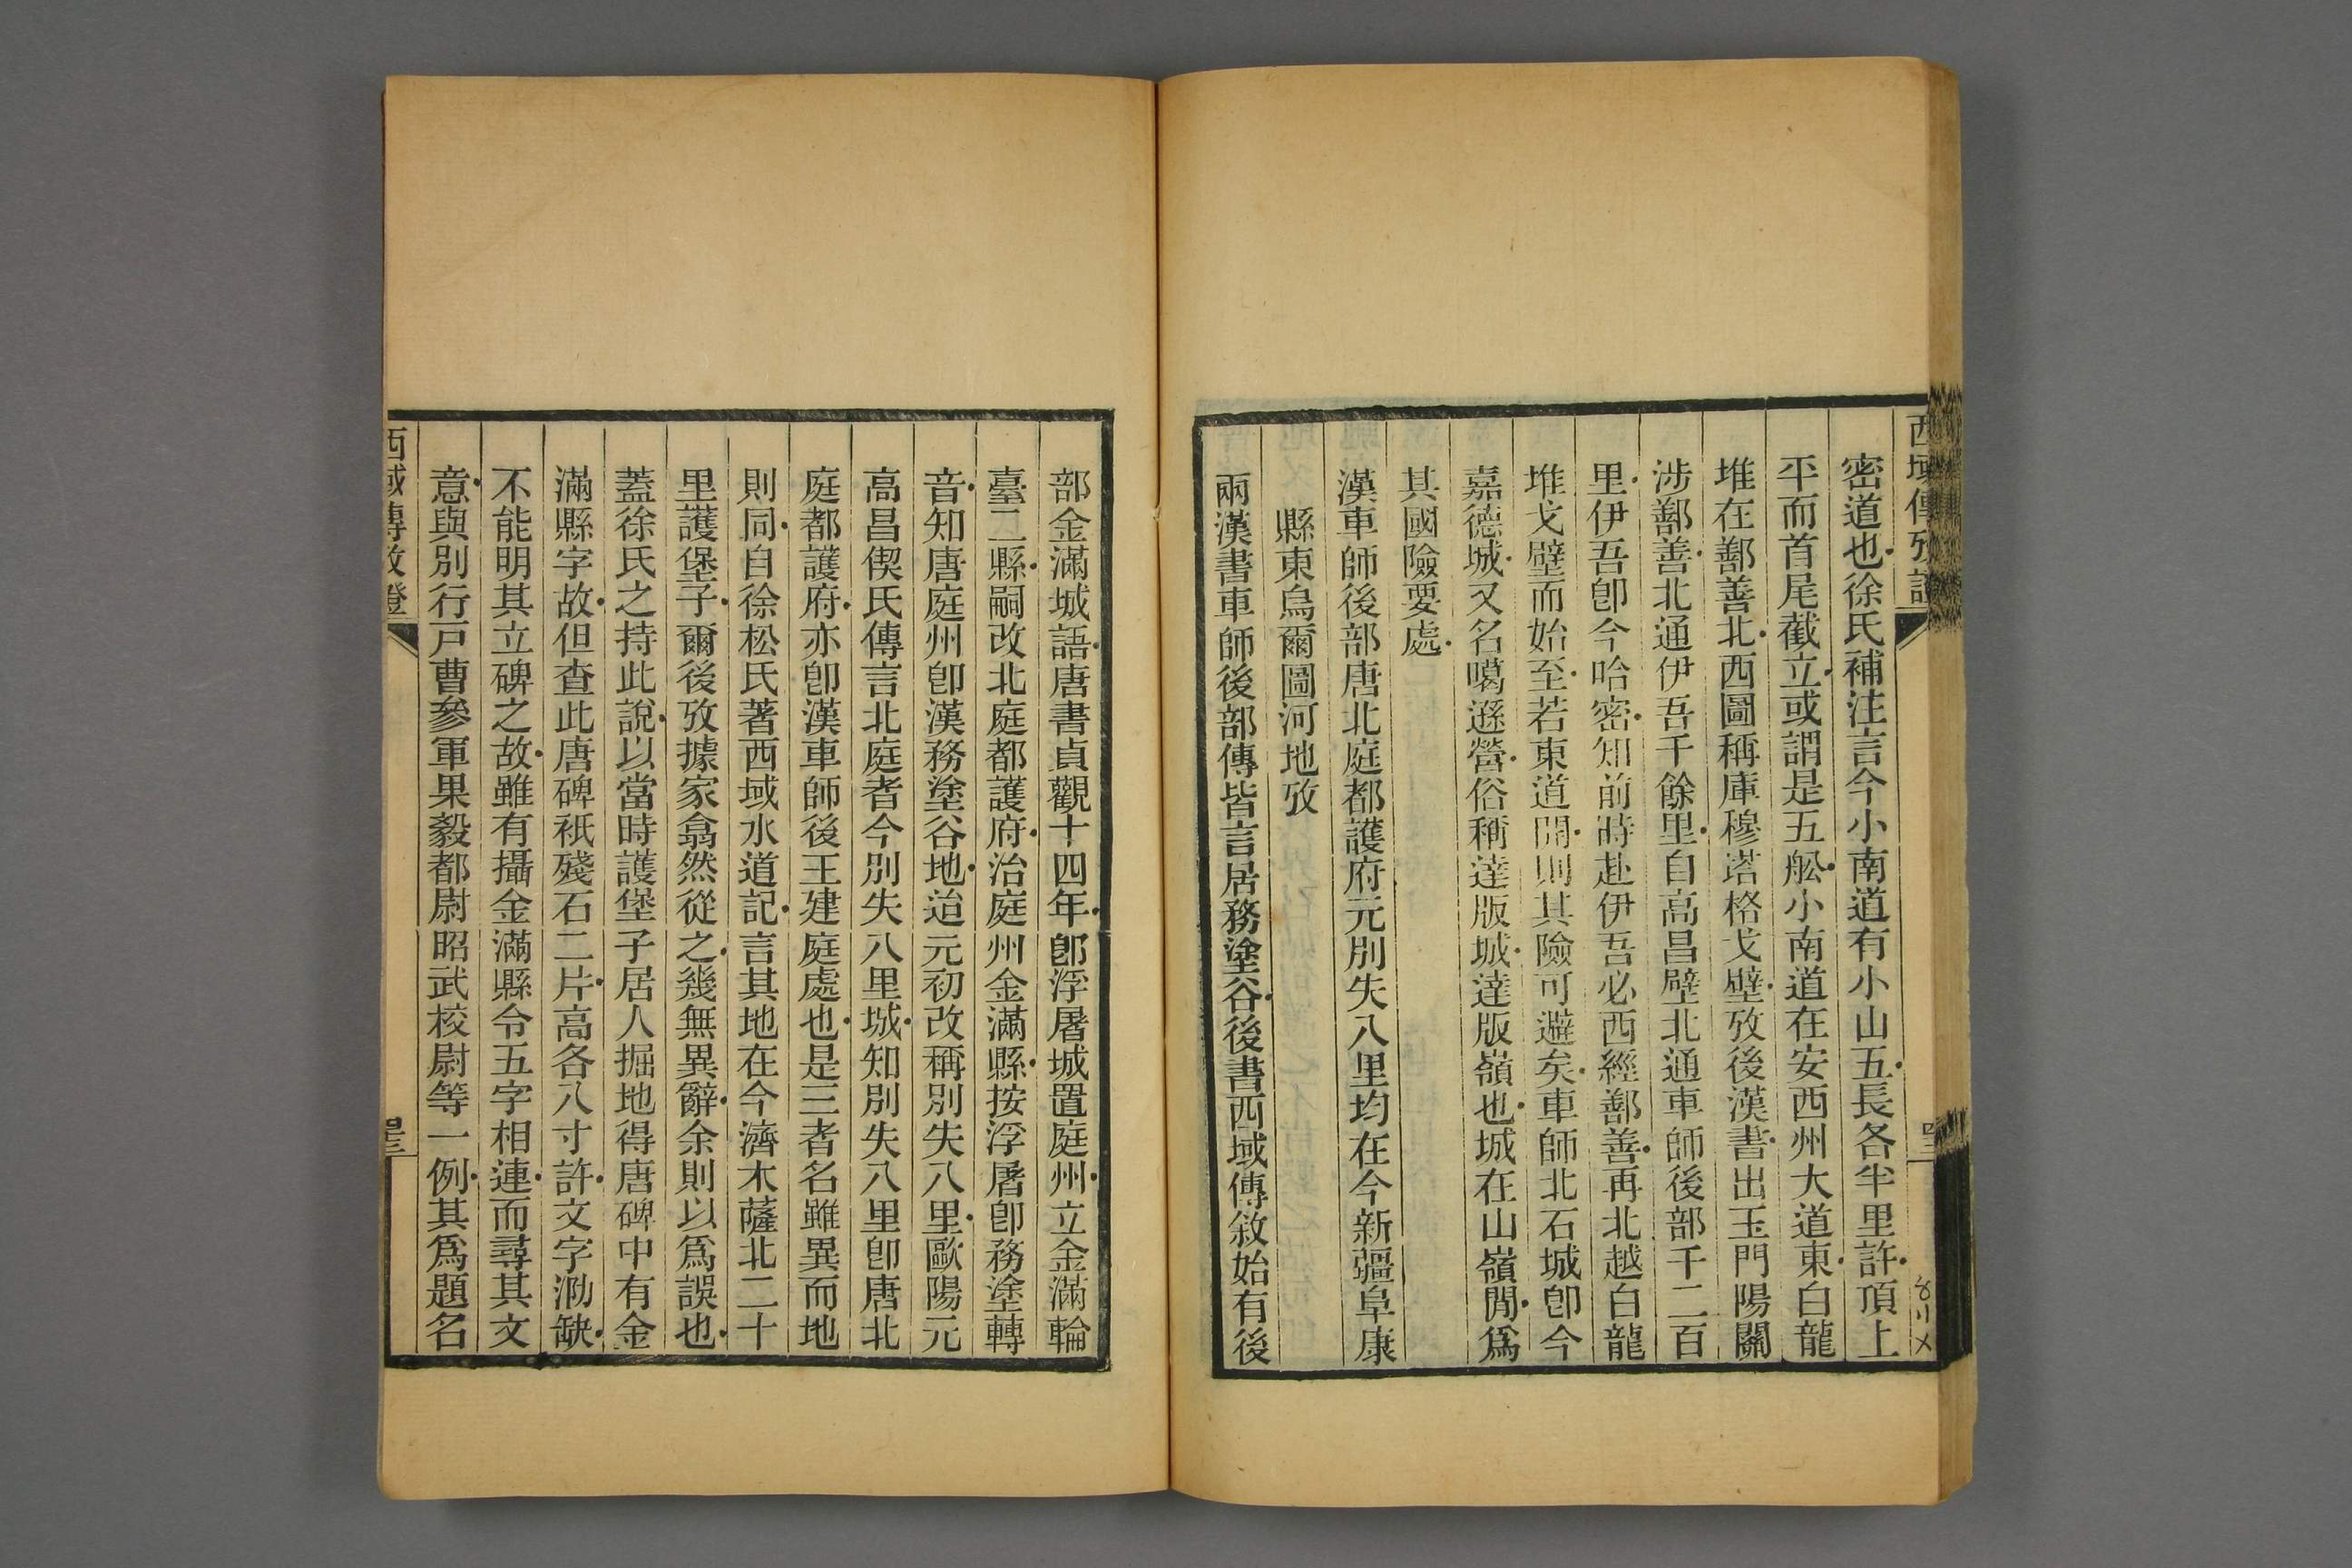 西域傳攷證
密道也徐氏補注言今小南道有小山五長各半里許頂上
平而首尾截立或謂是五舩小南道在安西州大道東白龍
堆在鄯善北西圖稱庫穆塔格戈壁攷後漢書出玉門陽關
涉鄯善北通伊吾千餘里自高昌壁北通車師後部千二百
里伊吾卽今哈密知前時赴伊吾必西經鄯善再北越白龍
堆戈壁而始至若東道開則其險可避矣車師北石城卽今
嘉德城又名噶遜營俗稱達版城達版嶺也城在山嶺閒爲
其國險要處
漢車師後部唐北庭都護府元別失八里均在今新疆阜康
縣東烏爾圖河地攷
兩漢書車師後部傳皆言居務塗谷後書西域傳敘始有後
部金滿城語唐書貞觀十四年卽浮屠城置庭州立金滿輪
臺二縣嗣改北庭都護府治庭州金滿縣按浮屠卽務塗轉
音知唐庭州卽漢務塗谷地迨元初改稱別失八里歐陽元
高昌偰氏傳言北庭者今別失八里城知別失八里卽唐北
庭都護府亦卽漢車師後王建庭處也是三者名雖異而地
則同自徐松氏著西域水道記言其地在今濟木薩北二十
里護堡子爾後攷據家翕然從之幾無異辭余則以爲誤也
蓋徐氏之持此說以當時護堡子居人掘地得唐碑中有金
滿縣字故但查此唐碑衹殘石二片高各八寸許文字泐缺
不能明其立碑之故雖有攝金滿縣令五字相連而尋其文
意與別行戸曹參軍果毅都尉昭武校尉等一例其爲題名
西域傳攷證